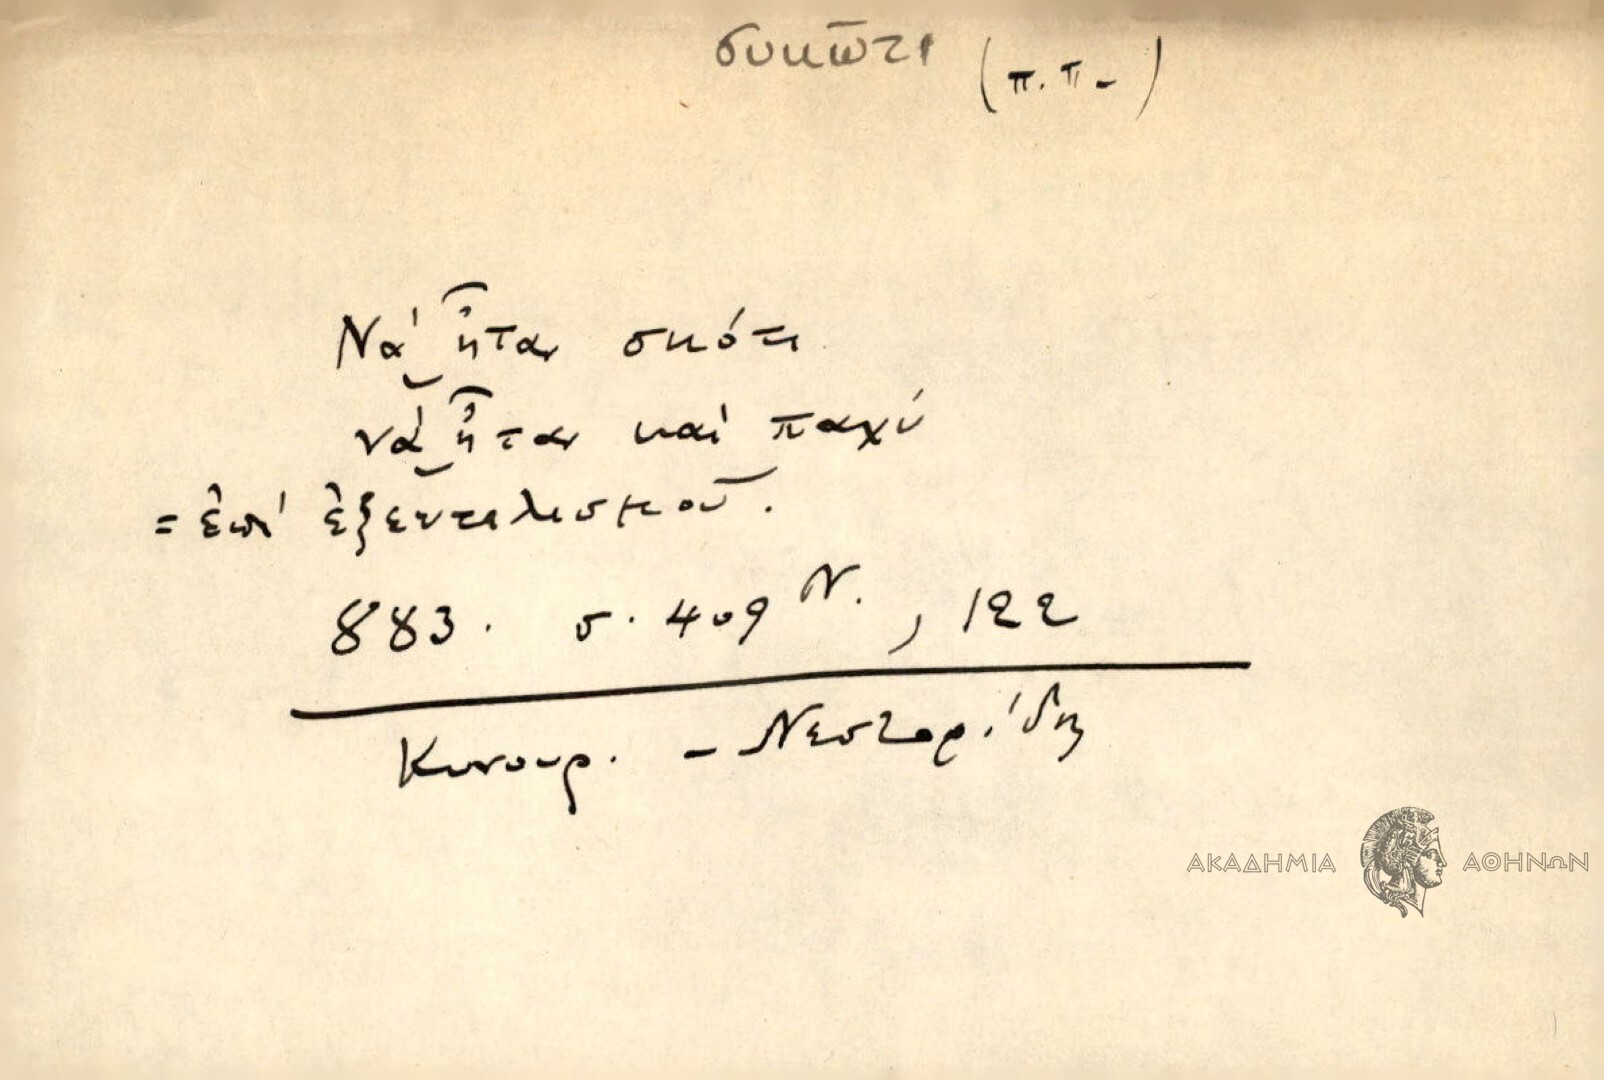 συκῶτι (π.π.)
Νά ἦταν σκότι
νά ἦταν καί παχύ
= ἐπί ἐξευτελισμοῦ.
883. σ. 409 Ν. , 122
Κυνουρ. - Νεστορίδη
ΑΚΑΔΗΜΙΑ ΑΘΗΝΩΝ